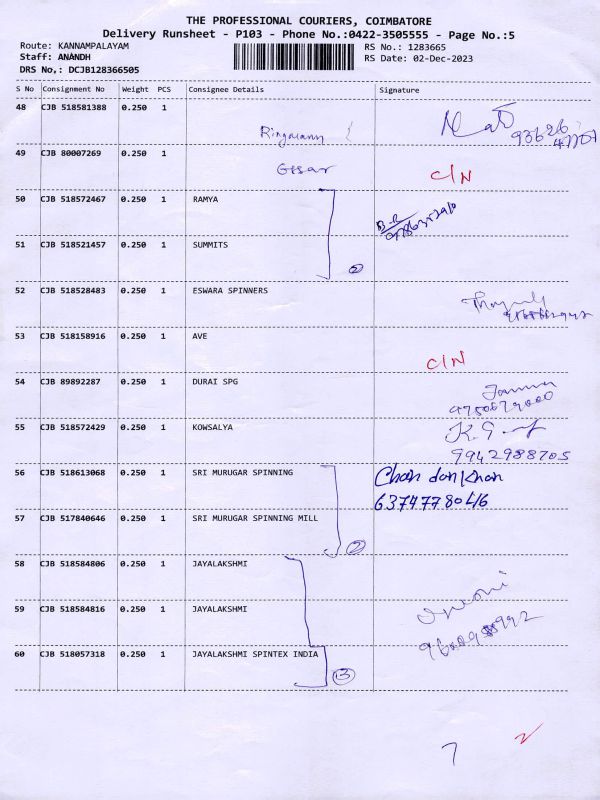 THE PROFESSIONAL COURIERS, COIMBATORE
Delivery Runsheet - P103 - Phone No.:0422-3505555 - Page No.:5
Route: KANNAMPALAYAM RS No.: 1283665
Staff: ANANDH RS Date: 02-Dec-2023
DRS No,: DCJB128366505
S No Consignment No Weight PCS Consignee Details Signature
48 CJB 518581388 0.250 1
49 CJB 80007269 0.250 1 C/N
50 CJB 518572467 0.250 1 RAMYA
51 CJB 518521457 0.250 1 SUMMITS
2
52 CJB 518528483 0.250 1 ESWARA SPINNERS
53 CJB 518158916 0.250 1 AVE
C/N
54 CJB 89892287 0.250 1 DURAI SPG
55 CJB 518572429 0.250 1 KOWSALYA
9942988705
56 CJB 518613068 0.250 1 SRI MURUGAR SPINNING Chan dan Khan
6374778046
57 CJB 517840646 0.250 1 SRI MURUGAR SPINNING MILL
2
58 CJB 518584806 0.250 1 JAYALAKSHMI
59 CJB 518584816 0.250 1 JAYALAKSHMI
60 CJB 518057318 0.250 1 JAYALAKSHMI SPINTEX INDIA
3
7